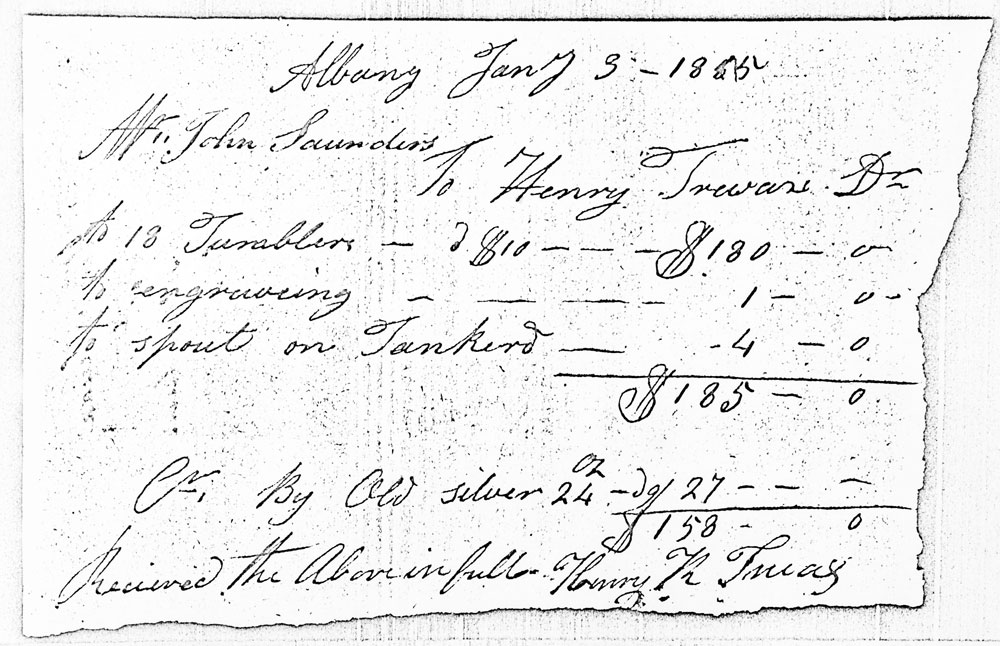 Albany Jany 3 - 18
Mr. John Saunders
To Henry Trevvax Dr
to 18 Tumblers - @ $10 - - - $180 - 0
to engraveing - - - - 1 - 0 -
to spout on Tankerd - - 4 - 0
$185 - 0
Cr. By Old silver 24 oz - 27 - - -
$158 - 0
Recieved the Above in full - Henry R